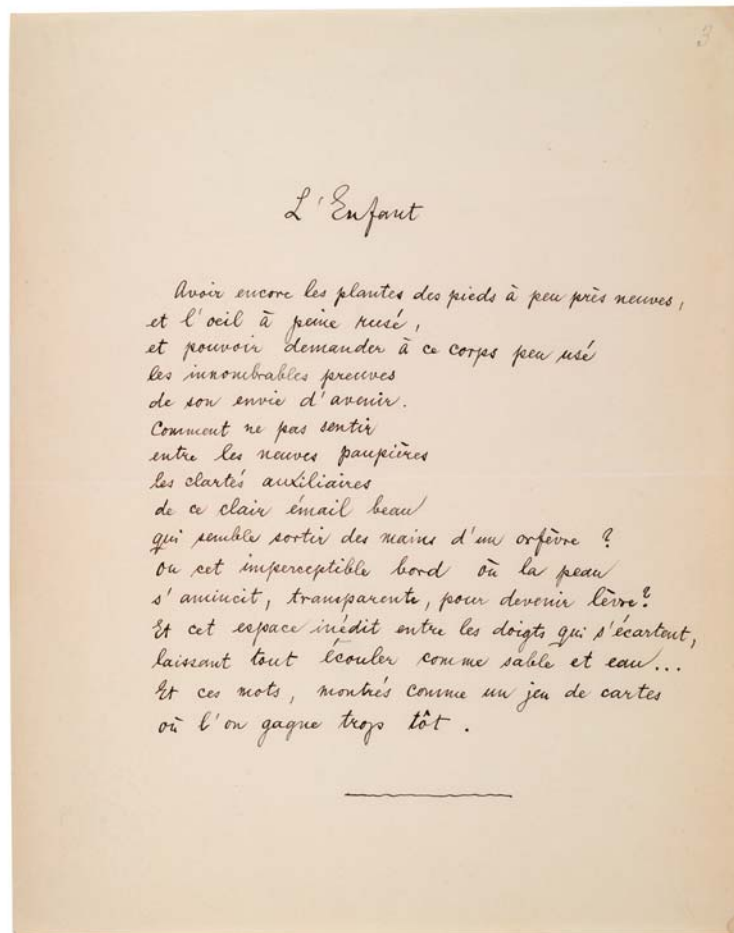 3
L'Enfant
Avoir encore les plantes des pieds à peu près neuves,
et l'oeil à peine rusé,
et pouvoir demander à ce corps peu usé
les innombrables preuves
de son envie d'avenir.
Comment ne pas sentir
entre les neuves paupières
les clartés auxiliaires
de ce clair émail beau
qui semble sortir des mains d'un orfèvre ?
ou cet imperceptible bord où la peau
s'amincit, transparente, pour devenir lèvre?
Et cet espace inédit entre les doigts qui s'écartent,
laissant tout écouler comme sable et eau...
Et ces mots, montrés comme un jeu de cartes
où l'on gagne trop tôt.